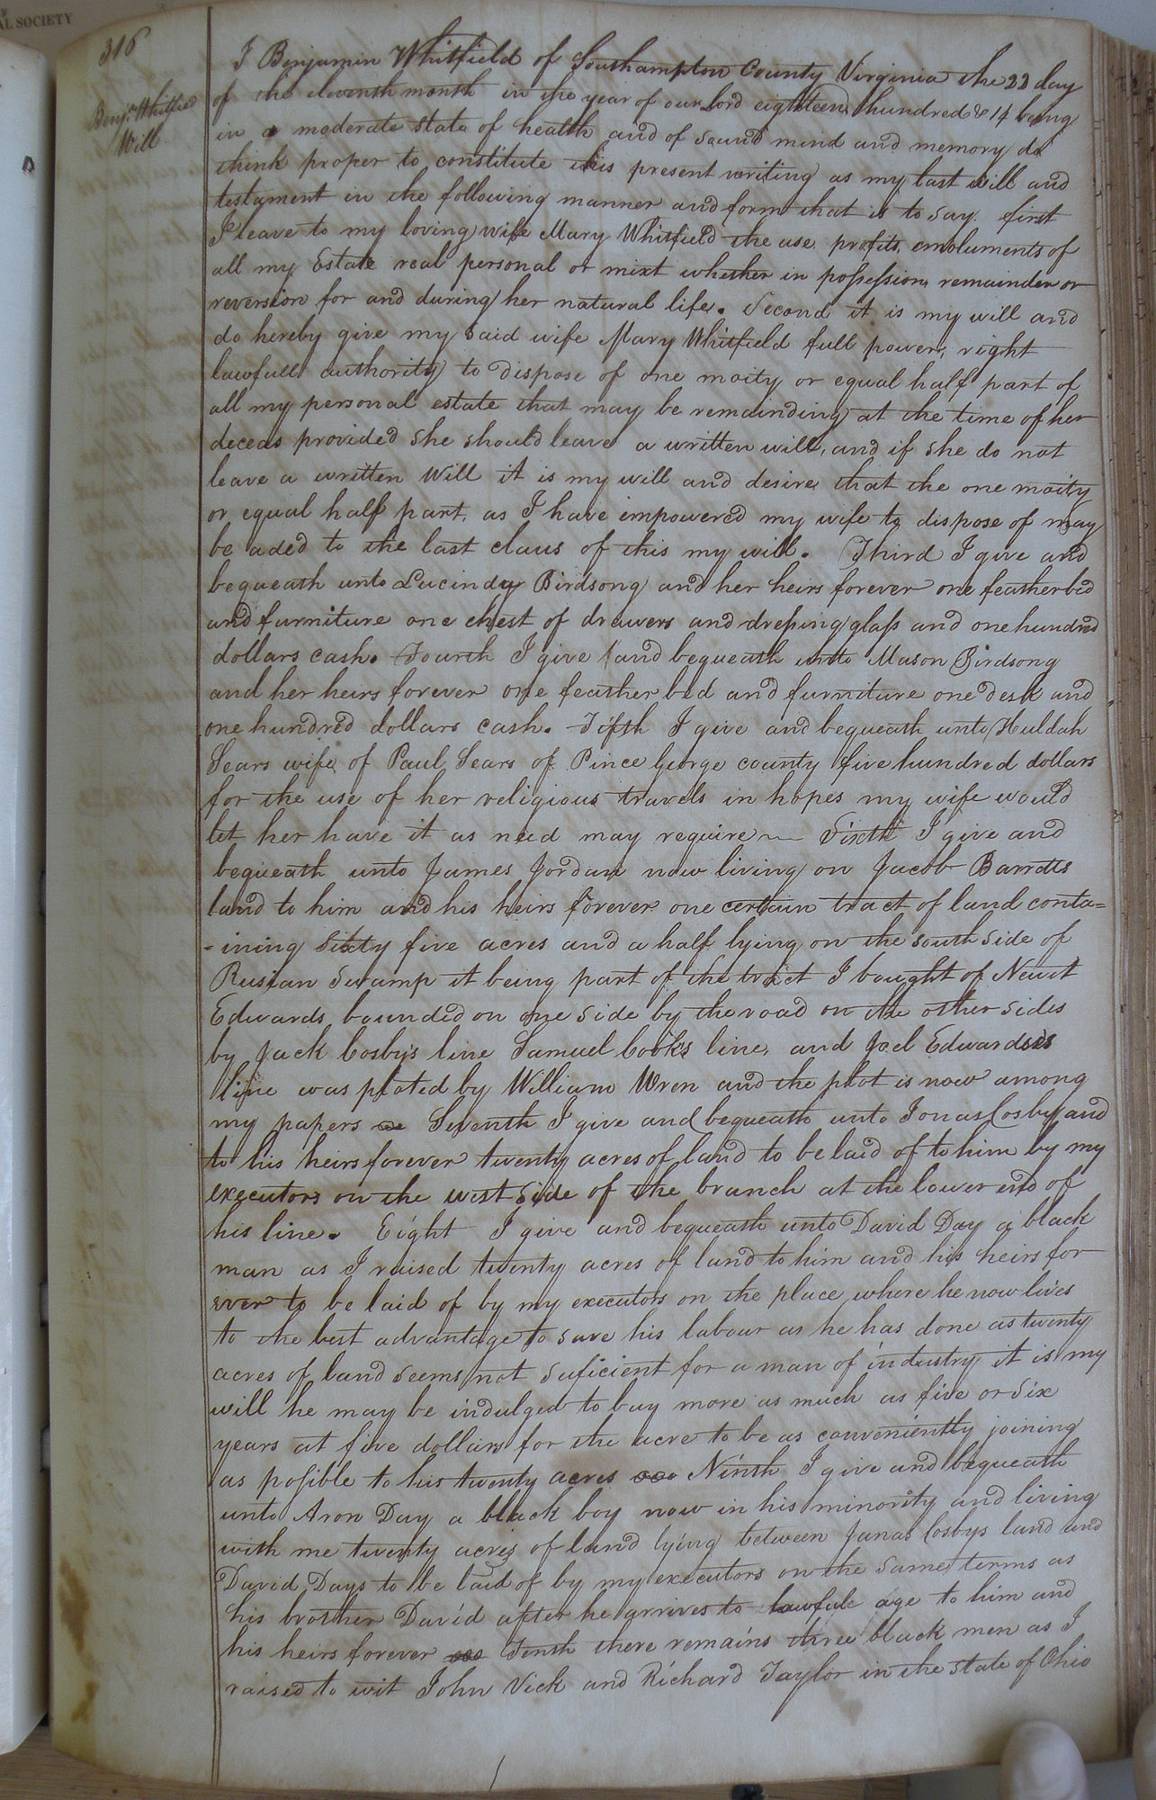 AL SOCIETY
316
Benjn. Whitfield
Will
I Benjamin Whitfield of Southampton County Virginia the 22 day
of the eleventh month in the year of our Lord eighteen hundred & 14 being
in a moderate state of health and of sound mind and memory do
think proper to constitute this present writing as my last will and
testament in the following manner and form that is to say. first
I leave to my loving wife Mary Whitfield the use profits emoluments of
all my Estate real personal or mixt whether in possession remainder or
reversion for and during her natural life. Second it is my will and
do hereby give my said wife Mary Whitfield full power, right
lawfull authority to dispose of one moity or equal half part of
all my personal estate that may be remainding at the time of her
deceas provided she should leave a written will, and if she do not
leave a written Will it is my will and desire that the one moity
or equal half part, as I have empowered my wife to dispose of may
be aded to the last claus of this my will. Third I give and
bequeath unto Lucinday Birdsong and her heirs forever one featherbed
and furniture one chest of drawers and dressing glass and one hundred
dollars cash. Fourth I give and bequeath unto Mason Birdsong
and her heirs forever one feather bed and furniture one desk and
one hundred dollars cash. Fifth I give and bequeath unto Huldah
Sears wife of Paul Sears of Pince George county five hundred dollars
for the use of her religious travels in hopes my wife would
let her have it as need may require Sixth I give and
bequeath unto James Jordan now living on Jacob Barretts
land to him and his heirs forever one certain tract of land conta=
-ining Sixty five acres and a half lying on the south side of
Rusian Swamp it being part of the tract I bought of Newit
Edwards bounded on one side by the road on the other sides
by Jack Cosbys line Samuel Cooks line, and Joel Edwardses
line was ploted by William Wren and the plot is now among
my papers Seventh I give and bequeath unto Jonas Cosby and
to his heirs forever twenty acres of land to be laid of to him by my
executors on the west side of the branch at the lower end of
his line. Eight I give and bequeath unto David Day a black
man as I raised twenty acres of land to him and his heirs for
ever to be laid of by my executors on the place where he now lives
to the best advantage to save his labour as he has done as twenty
acres of land seems not suficient for a man of industry it is my
will he may be indulged to buy more as much as five or six
years at five dollars for the acre to be as conveniently joining
as posible to his twenty acres Ninth I give and bequeath
unto Aron Day a black boy now in his minority and living
with me twenty acres of land lying between Janas Cosbys land and
David Days to be laid of by my executors on the same terms as
his brother David after he arrives to lawfull age to him and
his heirs forever Tenth there remains three black men as I
raised to wit John Vick and Richard Taylor in the state of Ohio